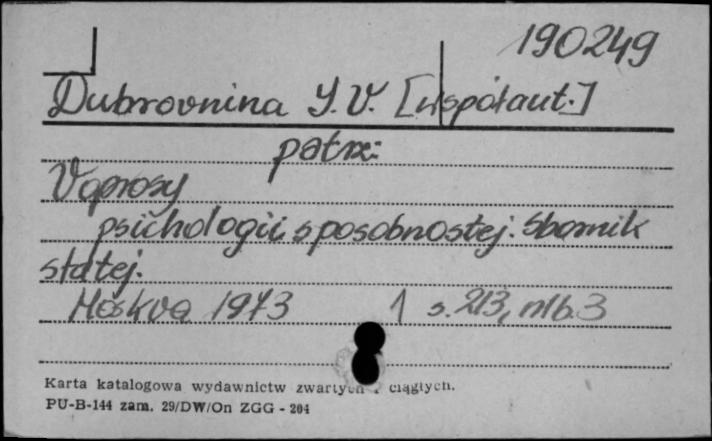 190249
Dubrovnina I. V. [współaut.]
patrz:
Voprosy
psichologii sposobnostej. Sbornik
statej.
Moskva 1973 1 s. 213, nlb. 3
Karta katalogowa wydawnictw zwartych i ciągłych.
PU-B-144 zam. 29/DW/On ZGG - 204